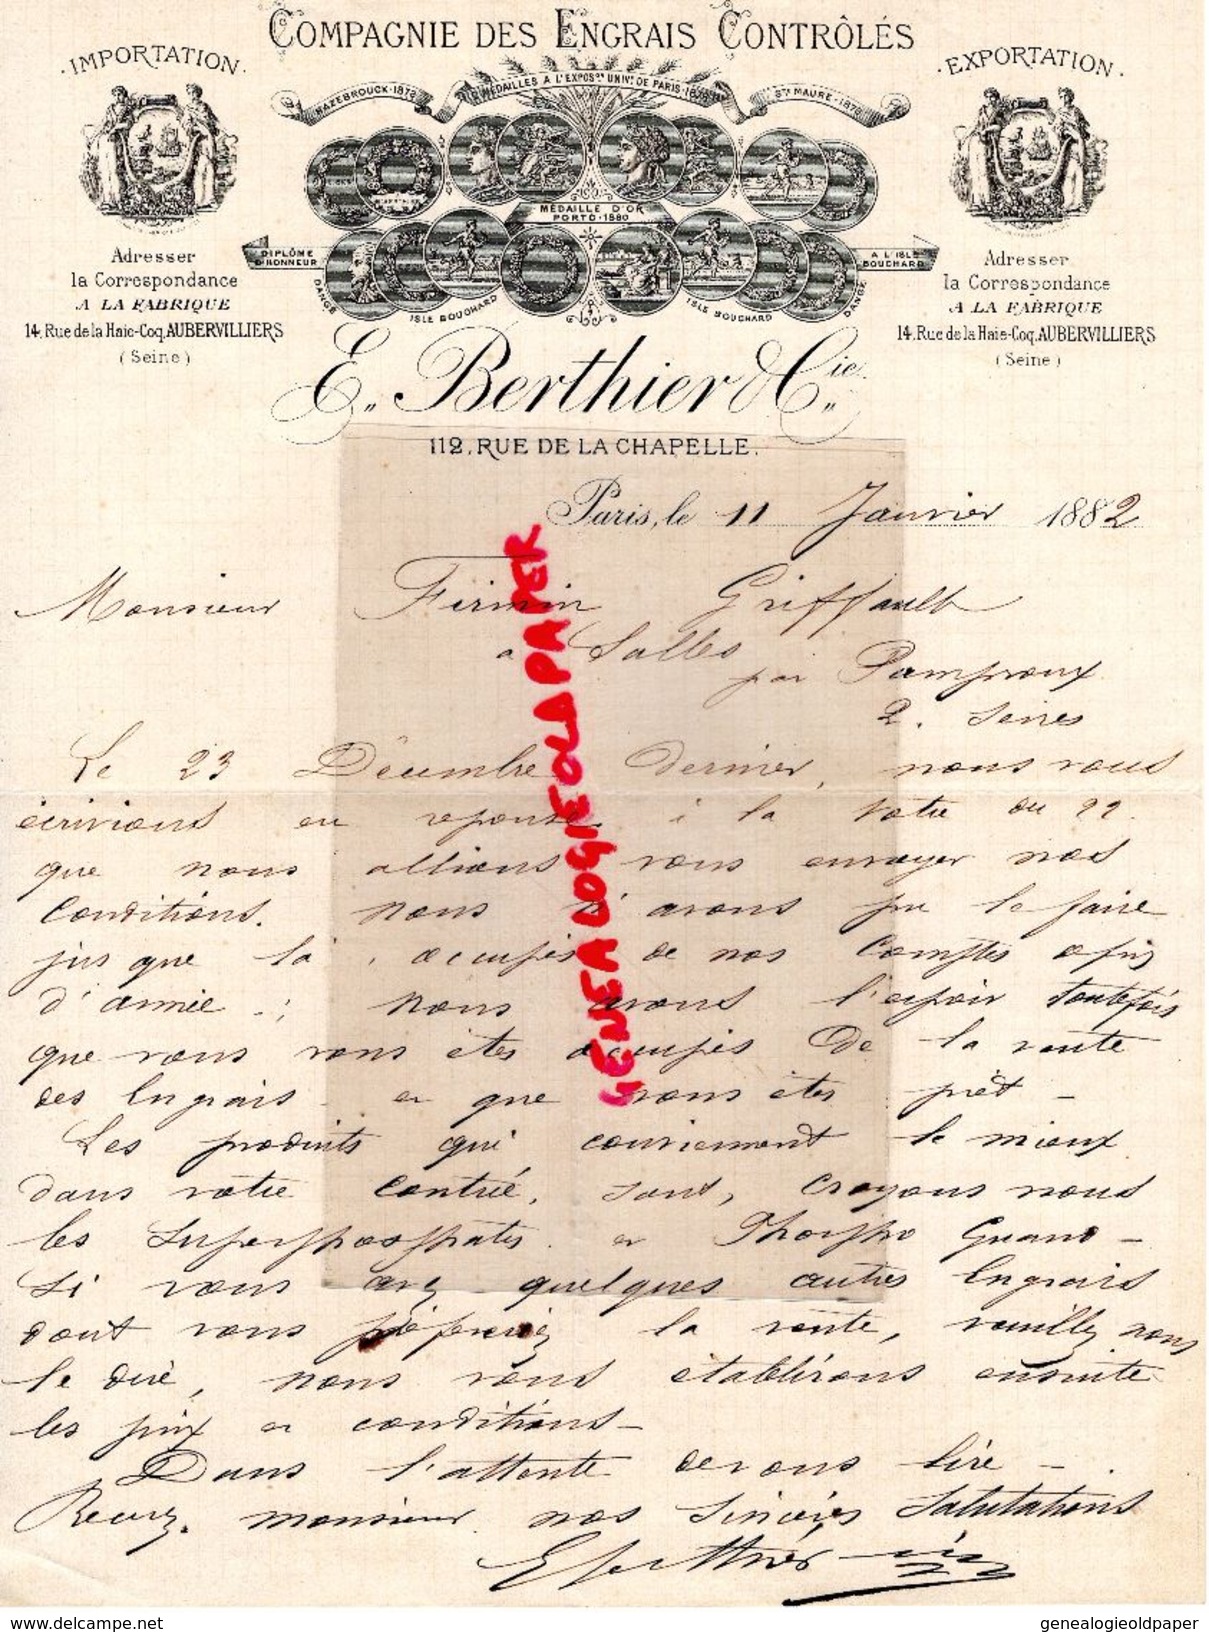 COMPAGNIE DES ENGRAIS CONTRÔLÉS
.IMPORTATION.
.EXPORTATION.
HAZEBROUCK-1878
MÉDAILLES A L'EXPOSON UNIVLE DE PARIS-1878
STE MAURE-1878
MÉDAILLE D'OR
PORTO-1880
DIPLÔME
D'HONNEUR
A L'ISLE
BOUCHARD
DANGÉ
ISLE BOUCHARD
ISLE BOUCHARD
DANGÉ
Adresser
la Correspondance
A LA FABRIQUE
14, Rue de la Haie-Coq, AUBERVILLIERS
(Seine)
Adresser
la Correspondance
A LA FABRIQUE
14, Rue de la Haie-Coq, AUBERVILLIERS
(Seine)
E. Berthier & Cie
112, RUE DE LA CHAPELLE.
Paris, le 11 Janvier 1882
Monsieur Firmin Griffault
a Salles
par Pamproux
2. Sevres
Le 23 Décembre dernier, nous vous
écrivions en reponse à la votre du 22.
que nous allions vous envoyer nos
Conditions. Nous n'avons pu le faire
jusque là, occupés de nos Comptes de fin
d'année.; Nous avons l'espoir toutefois
que vous vous êtes occupés de la vente
des Engrais et que vous êtes prêt -
Les produits qui conviennent le mieux
dans votre contrée, sont, croyons nous
les Superphosphates et Phospho Guano -
Si vous avez quelques autres Engrais
dont vous préfériez la vente, veuillez nous
le dire, nous vous établirons ensuite
les prix et conditions -
Dans l'attente de vous lire -
Recevez, monsieur, nos Sincères Salutations
E Berthier
GENEALOGIEOLDPAPER
www.delcampe.net
genealogieoldpaper